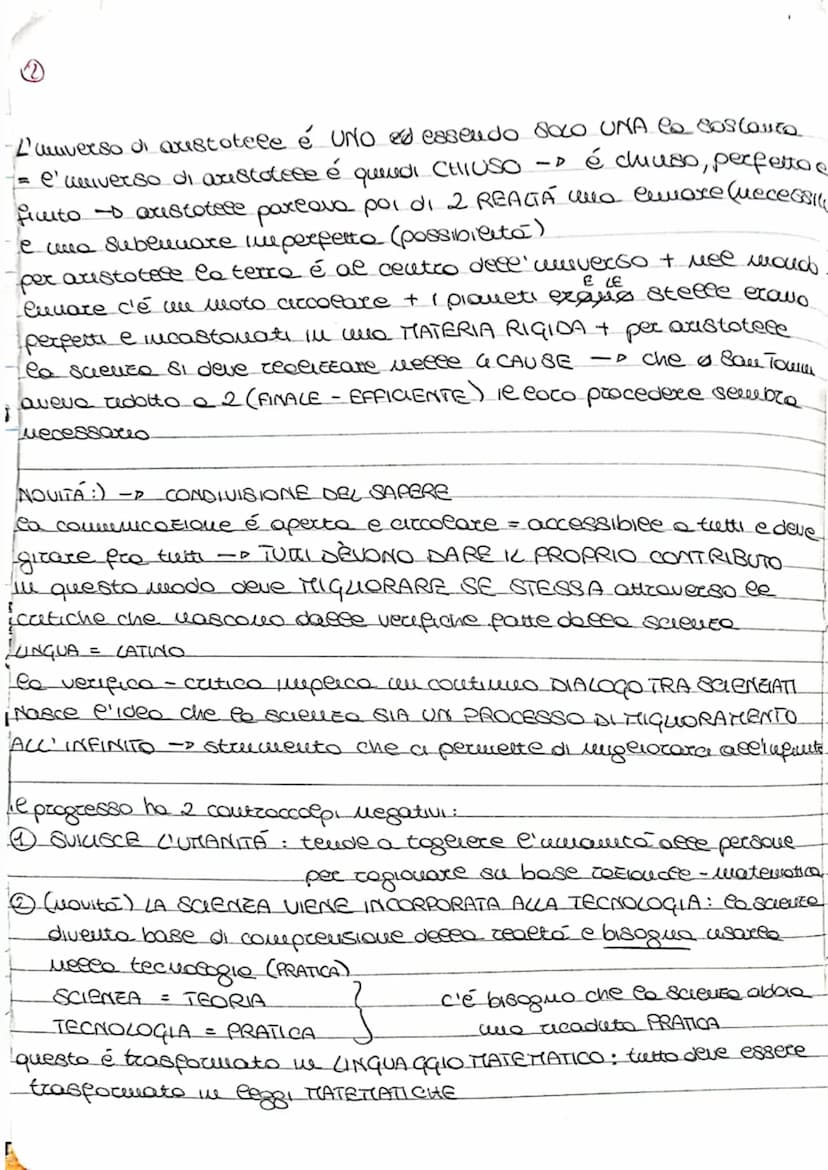 2
L'universo di aristotele é UNO ed essendo SOLO UNA la sostanza
= l'universo di aristotele é quindi CHIUSO → é chiuso, perfetto e
finito → aristotele parlava poi di 2 REALTÁ una lunare (necessità
e una sublunare imperfetta (possibilitá)
per aristotele la terra é al centro dell'universo + nel mondo
lunare c'é un moto circolare + i pianeti E LE stelle erano
perfetti e incastonati in una MATERIA RIGIDA + per aristotele
la scienza si deve realizzare nelle 4 CAUSE → che San Tomm
aveva ridotto a 2 (FINALE - EFFICIENTE) il loro procedere sembra
necessario
NOVITÁ:) → CONDIVISIONE DEL SAPERE
la comunicazione é aperta e circolare = accessibile a tutti e deve
girare fra tutti → TUTTI DEVONO DARE IL PROPRIO CONTRIBUTO
in questo modo deve MIGLIORARE SE STESSA attraverso le
critiche che nascono dalle verifiche fatte dalla scienza
LINGUA = LATINO
la verifica - critica implica un continuo DIALOGO TRA SCIENZIATI
Nasce l'idea che la scienza SIA UN PROCESSO DI MIGLIORAMENTO
ALL'INFINITO → strumento che ci permette di migliorarci all'infinito
il progresso ha 2 contraccolpi negativi:
① SVILISCE L'UMANITÁ : tende a togliere l'umanitá alle persone
per ragionare su base razionale - matematica
② (novitá) LA SCIENZA VIENE INCORPORATA ALLA TECNOLOGIA : la scienza
diventa base di comprensione della realtá e bisogna usarla
nella tecnologia (PRATICA)
SCIENZA = TEORIA } c'é bisogno che la scienza abbia
TECNOLOGIA = PRATICA una ricaduta PRATICA
questo é trasformato in LINGUAGGIO MATEMATICO : tutto deve essere
trasformato in leggi MATEMATICHE